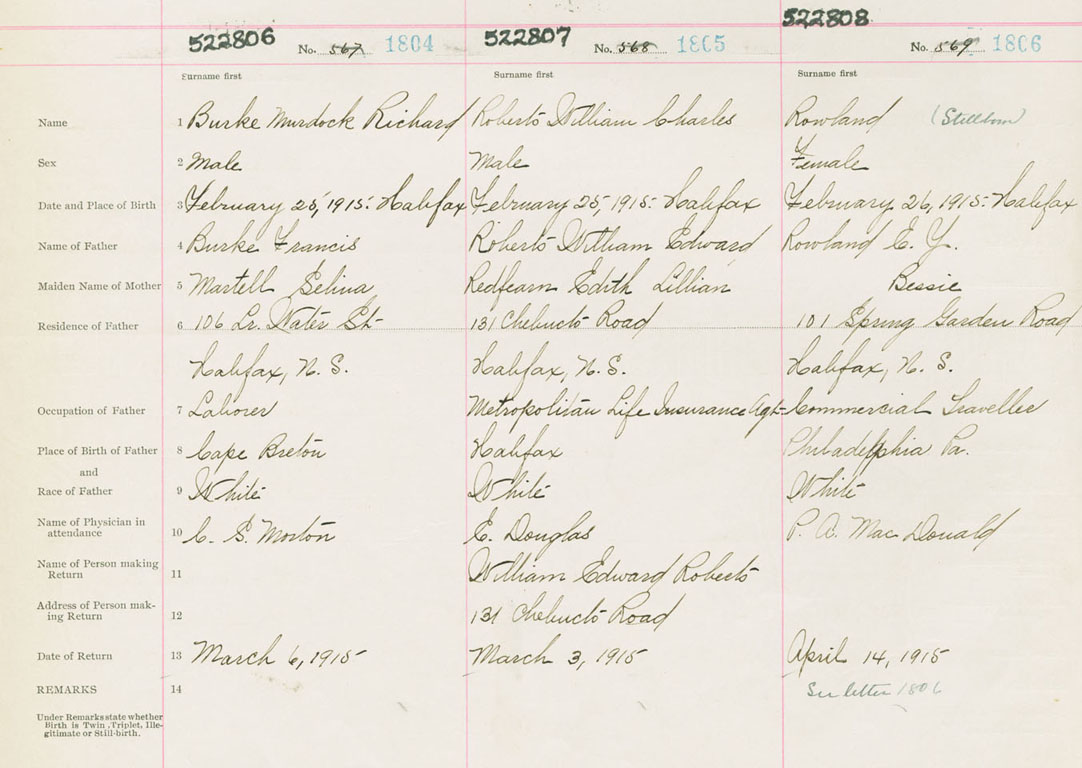 522806 No. 567 1804 522807 No. 568 1805 522808 No. 569 1806
Surname first Surname first Surname first
Name 1 Burke Murdock Richard Roberts William Charles Rowland (Stillborn)
Sex 2 Male Male Female
Date and Place of Birth 3 February 25, 1915. Halifax February 25, 1915. Halifax February 26, 1915. Halifax
Name of Father 4 Burke Francis Roberts William Edward Rowland E. Y.
Maiden Name of Mother 5 Martell Selina Redfearn Edith Lillian Bessie
Residence of Father 6 106 Lr. Water St. 131 Chebucto Road 101 Spring Garden Road
Halifax, N. S. Halifax, N. S. Halifax, N. S.
Occupation of Father 7 Laborer Metropolitan Life Insurance Agt. Commercial Traveller
Place of Birth of Father 8 Cape Breton Halifax Philadelphia Pa.
and
Race of Father 9 White White White
Name of Physician in
attendance 10 C. S. Morton E. Douglas P. A. MacDonald
Name of Person making
Return 11 William Edward Roberts
Address of Person mak-
ing Return 12 131 Chebucto Road
Date of Return 13 March 6, 1915 March 3, 1915 April 14, 1915
REMARKS 14 See letter 1806
Under Remarks state whether
Birth is Twin, Triplet, Ille-
gitimate or Still-birth.